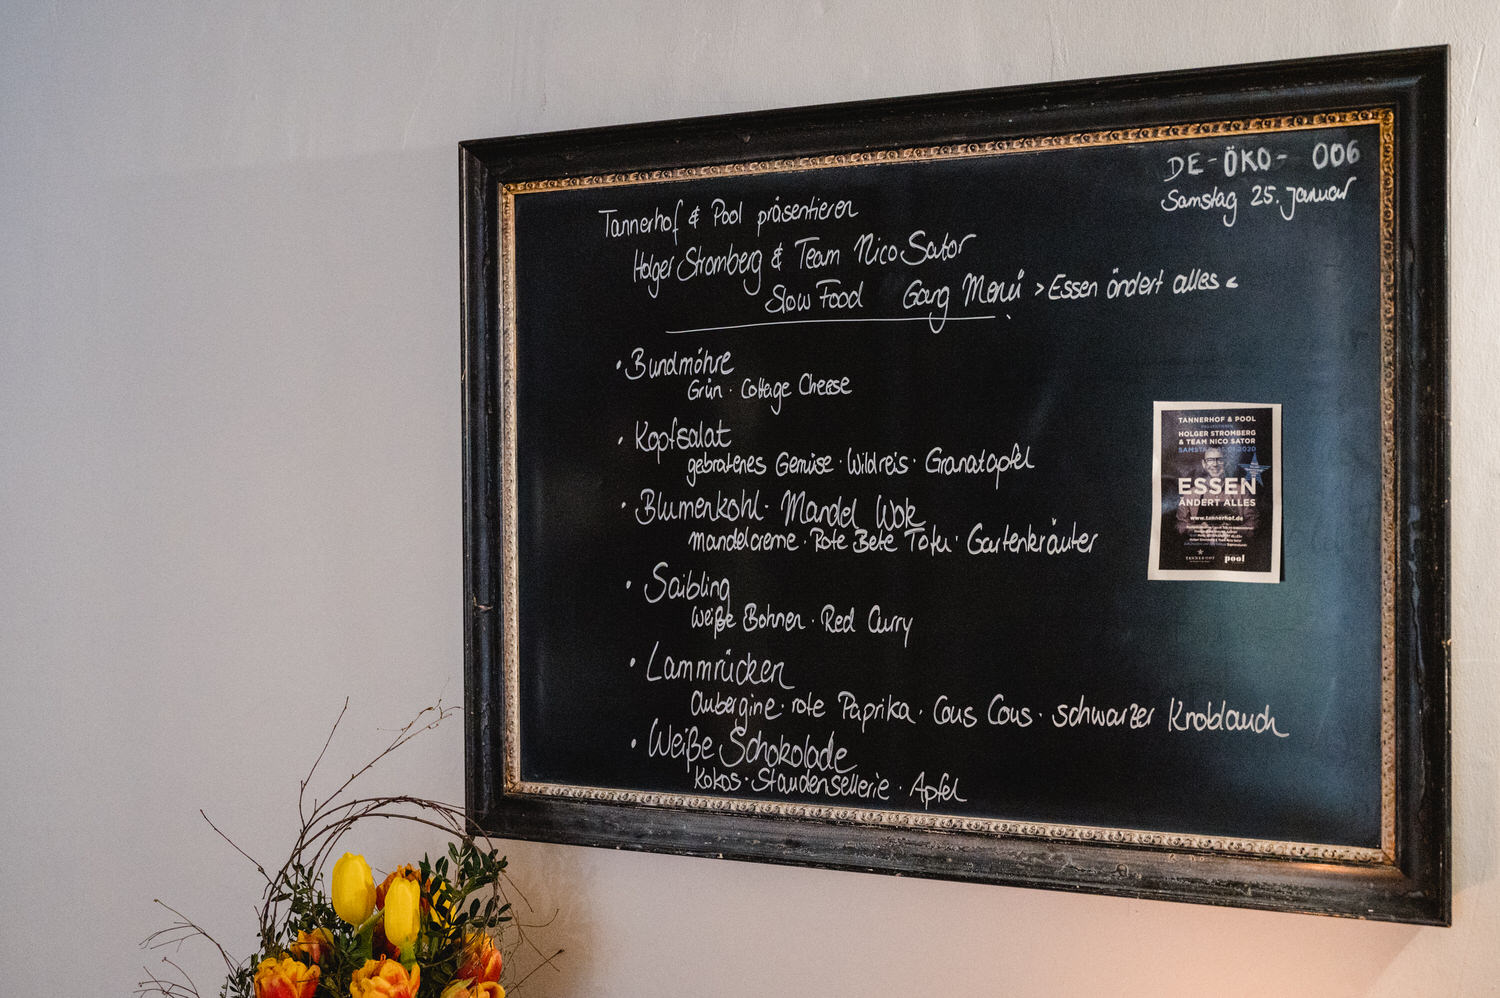 DE-ÖKO- 006
Samstag 25. Januar
Tannerhof & Pool präsentieren
Holger Stromberg & Team Nico Sator
Slow Food Gang Menü >Essen ändert alles<
• Bundmöhre
Grün · Cottage Cheese
• Kopfsalat
gebratenes Gemüse · Wildreis · Granatapfel
• Blumenkohl · Mandel Wok
mandelcreme · Rote Bete Tofu · Gartenkräuter
• Saibling
Weiße Bohnen · Red Curry
• Lammrücken
Aubergine · rote Paprika · Cous Cous · schwarzer Knoblauch
• Weiße Schokolade
Kokos · Staudensellerie · Apfel
TANNERHOF & POOL
HOLGER STROMBERG
& TEAM NICO SATOR
ESSEN
ÄNDERT ALLES
www.tannerhof.de
TANNERHOF
pool